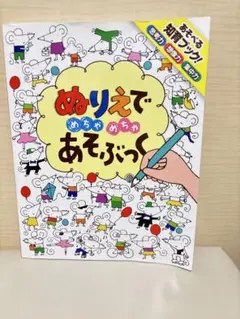 あそべる
知育ブック!
集中力
ぬりえで
めちゃめちゃ
あそぶっく